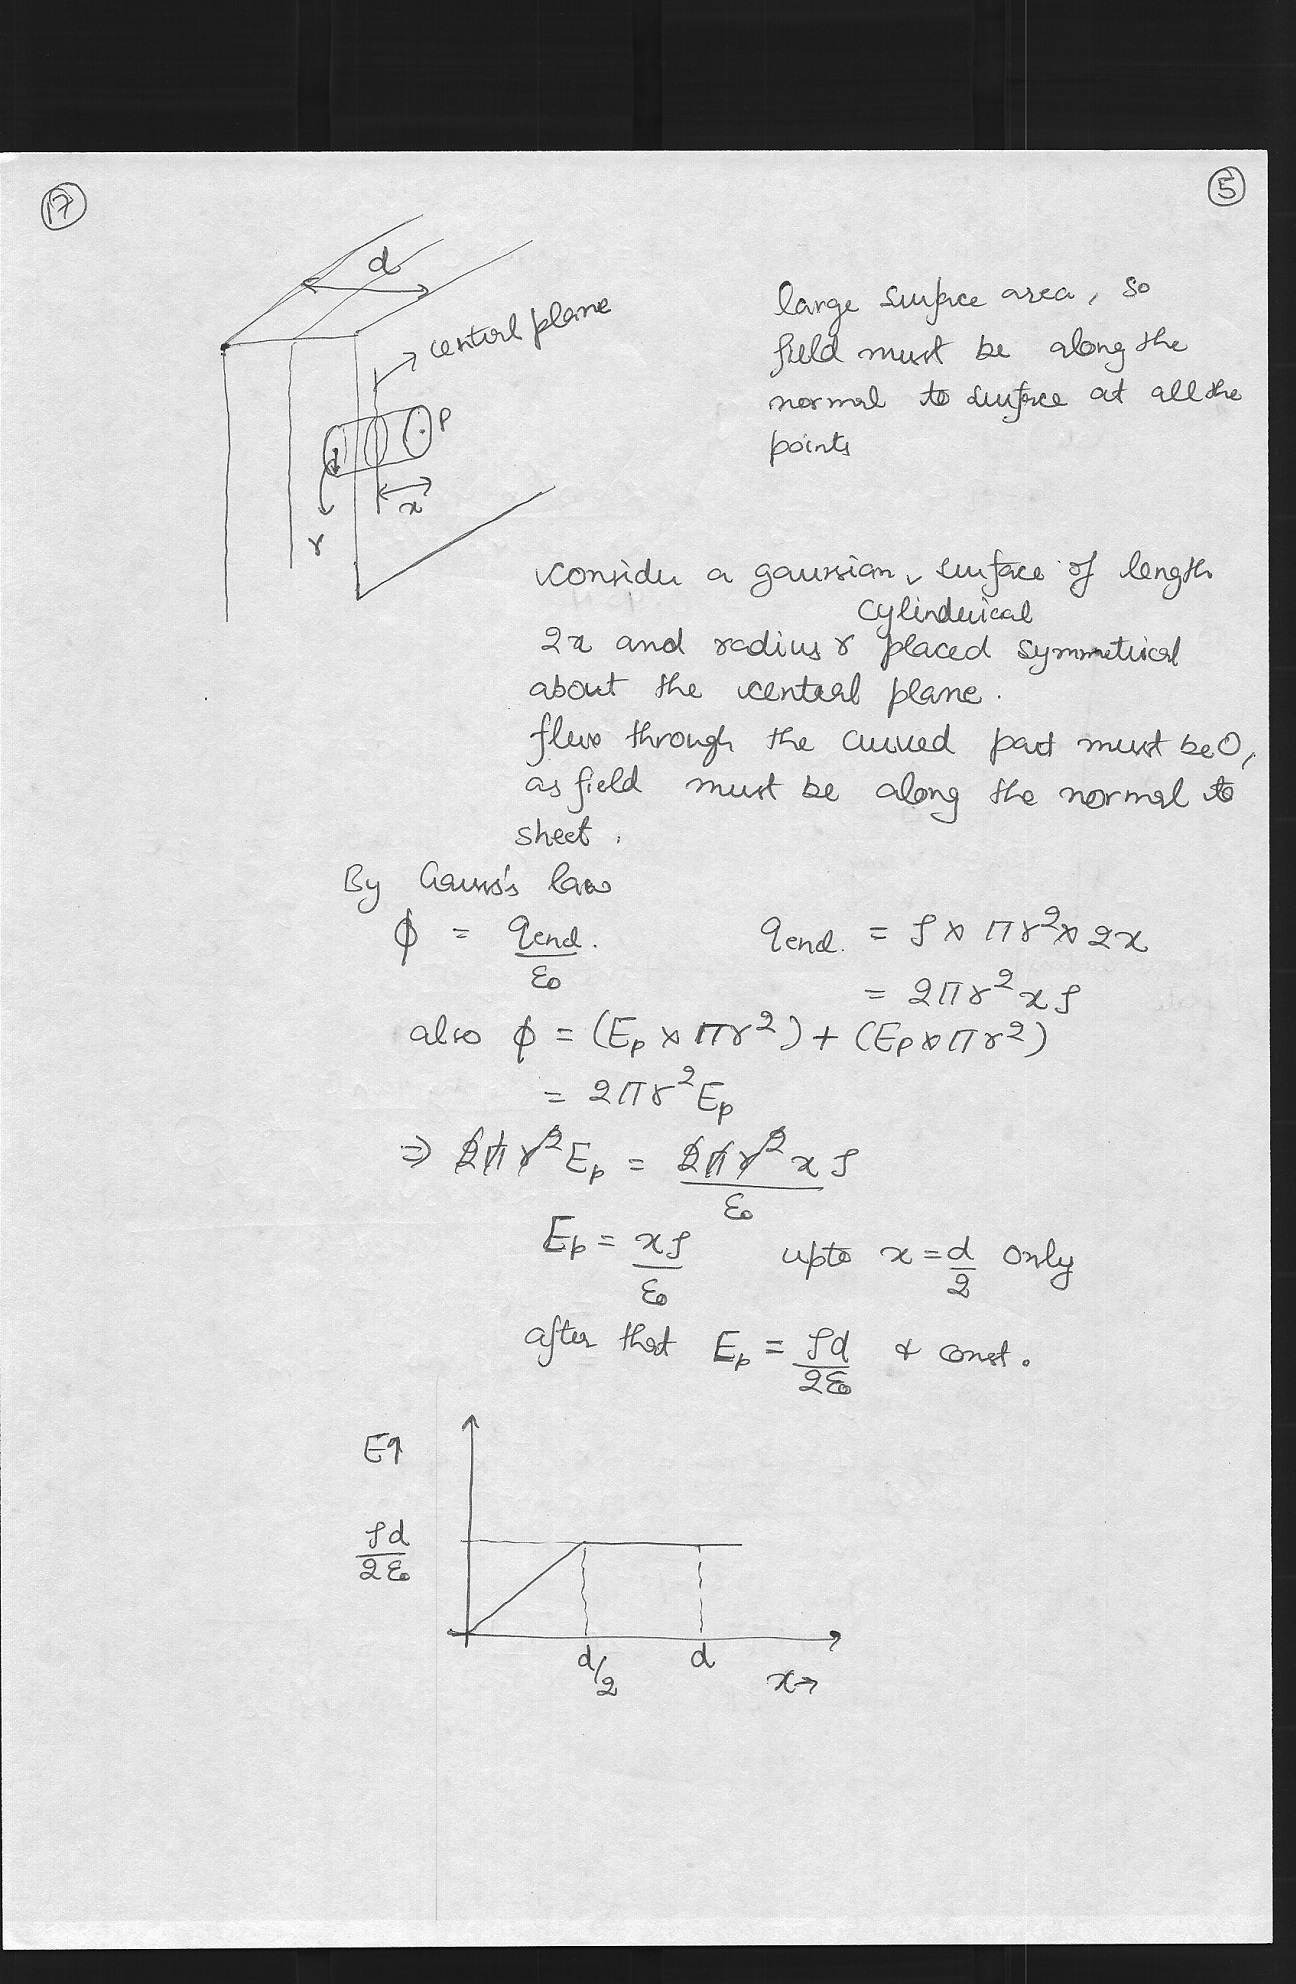 17
5
d
central plane
P
x
r
large surface area, so
field must be along the
normal to surface at all the
points
consider a gaussian cylinderical surface of length
2x and radius r placed symmetrical
about the central plane.
flux through the curved part must be 0,
as field must be along the normal to
sheet.
By Gauss's law
ϕ = qend./ε0
qend. = ρ × πr² × 2x
= 2πr²xρ
also ϕ = (Ep × πr²) + (Ep × πr²)
= 2πr²Ep
⇒ 2πr²Ep = 2πr²xρ/ε0
Ep = xρ/ε0 upto x = d/2 only
after that Ep = ρd/2ε0 & const.
E↑
ρd/2ε0
d/2
d
x→